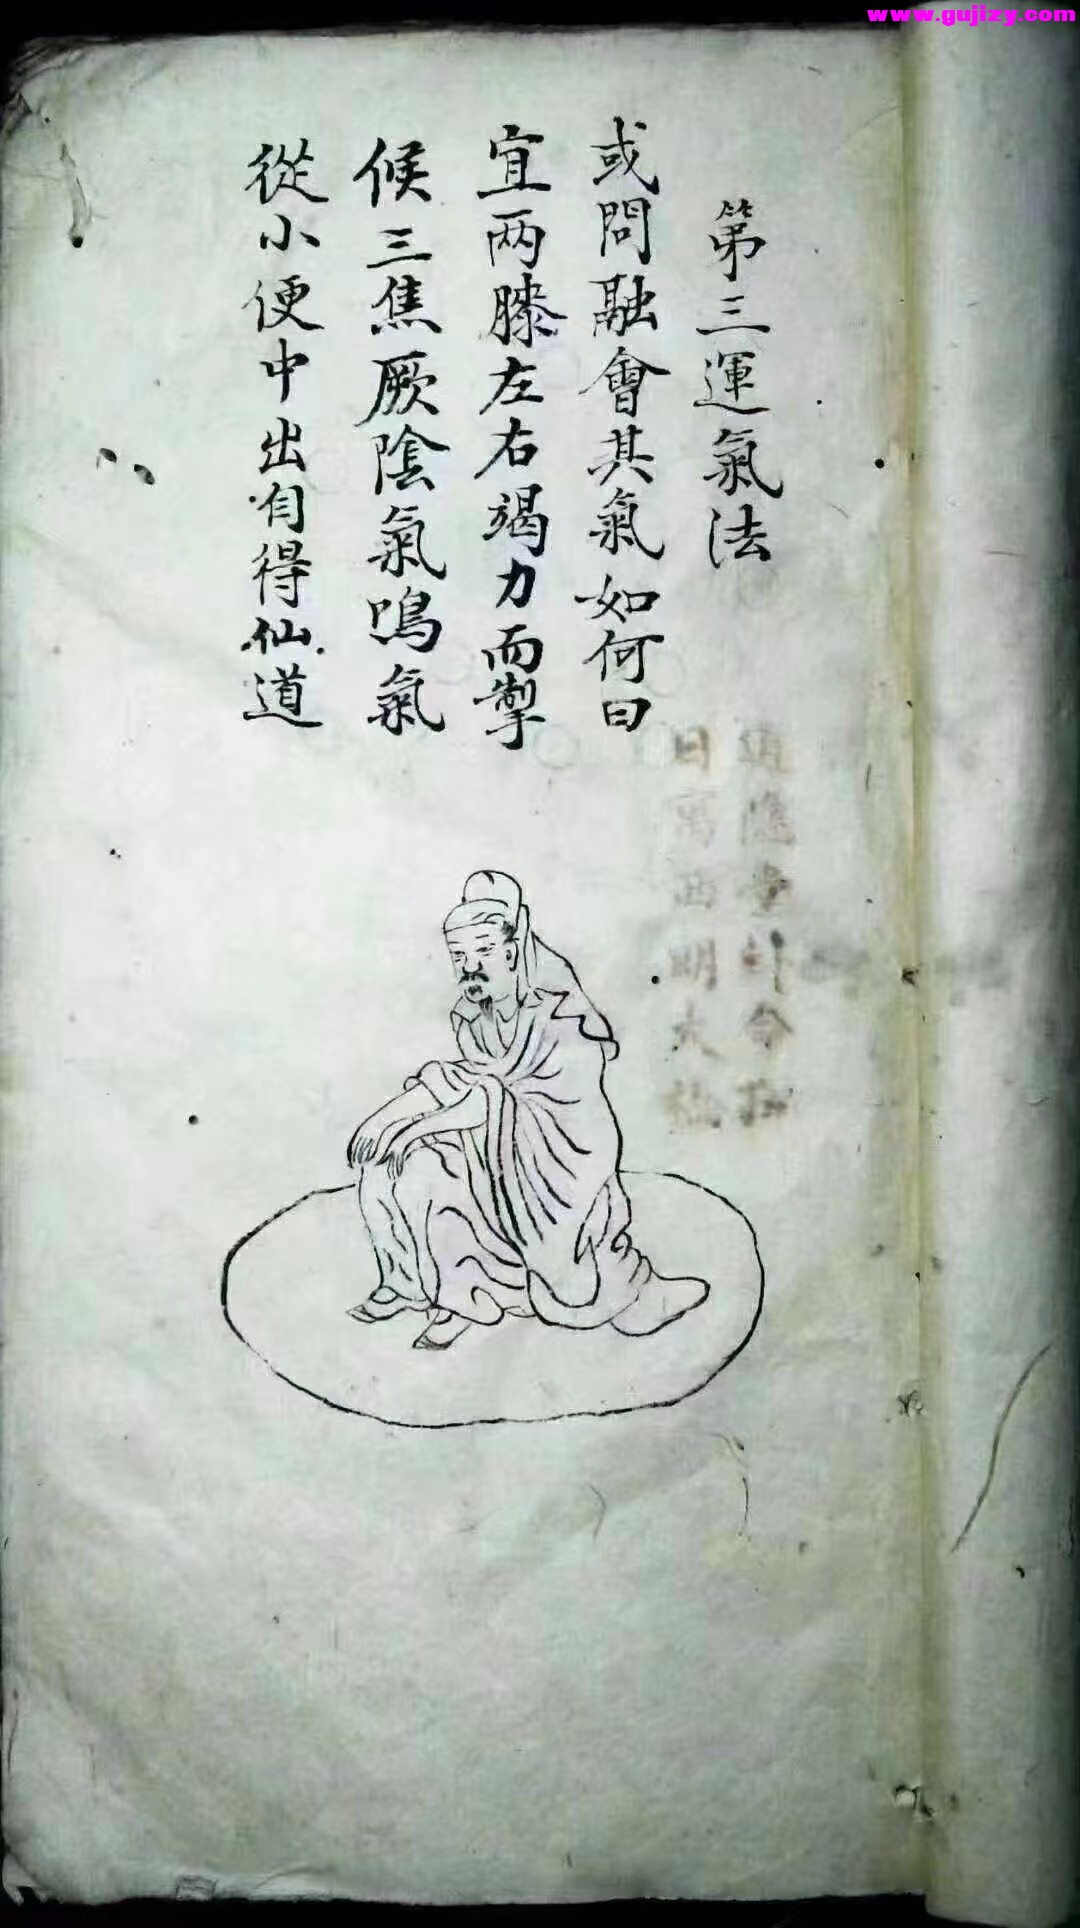 www.gujizy.com
第三運氣法
或問融會其氣如何曰
宜两膝左右竭力而掣
候三焦厥陰氣鳴氣
從小便中出自得仙道